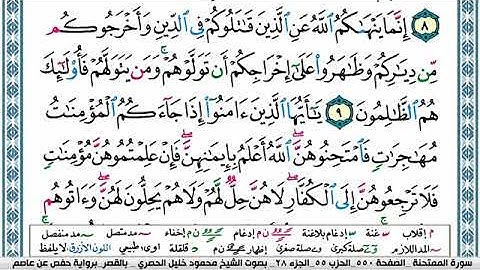 ٨ إِنَّمَا يَنْهَىٰكُمُ ٱللَّهُ عَنِ ٱلَّذِينَ قَٰتَلُوكُمْ فِي ٱلدِّينِ وَأَخْرَجُوكُم
مِّن دِيَٰرِكُمْ وَظَٰهَرُوا۟ عَلَىٰٓ إِخْرَاجِكُمْ أَن تَوَلَّوْهُمْ ۚ وَمَن يَتَوَلَّهُمْ فَأُو۟لَٰٓئِكَ
هُمُ ٱلظَّٰلِمُونَ ٩ يَٰٓأَيُّهَا ٱلَّذِينَ ءَامَنُوٓا۟ إِذَا جَآءَكُمُ ٱلْمُؤْمِنَٰتُ
مُهَٰجِرَٰتٍ فَٱمْتَحِنُوهُنَّ ۖ ٱللَّهُ أَعْلَمُ بِإِيمَٰنِهِنَّ ۖ فَإِنْ عَلِمْتُمُوهُنَّ مُؤْمِنَٰتٍ
فَلَا تَرْجِعُوهُنَّ إِلَى ٱلْكُفَّارِ ۖ لَا هُنَّ حِلٌّ لَّهُمْ وَلَا هُمْ يَحِلُّونَ لَهُنَّ ۖ وَءَاتُوهُم
م إقلاب ـّ غنة إدغام بلاغنة ن م إدغام إخفاء ـ مد متصل ـ مد منفصل
ـ المد اللازم صلة كبرى صلة صغرى إظهار ن م قلقلة اوى طبيعي اللون الأزرق لا يلفظ
سورة الممتحنة الصفحة ٥٥٠ الحزب ٥٥ الجزء ٢٨ بصوت الشيخ محمود خليل الحصري بالقصر برواية حفص عن عاصم